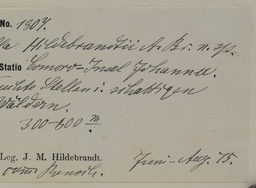 No. 1807.
Hildebrandtii A. Br. n. sp.
Statio Comoro-Insel Johanna.
feuchte Stellen i. schattigen
Wäldern.
300-600 m.
Leg. J. M. Hildebrandt.
Juni-Aug. 75.